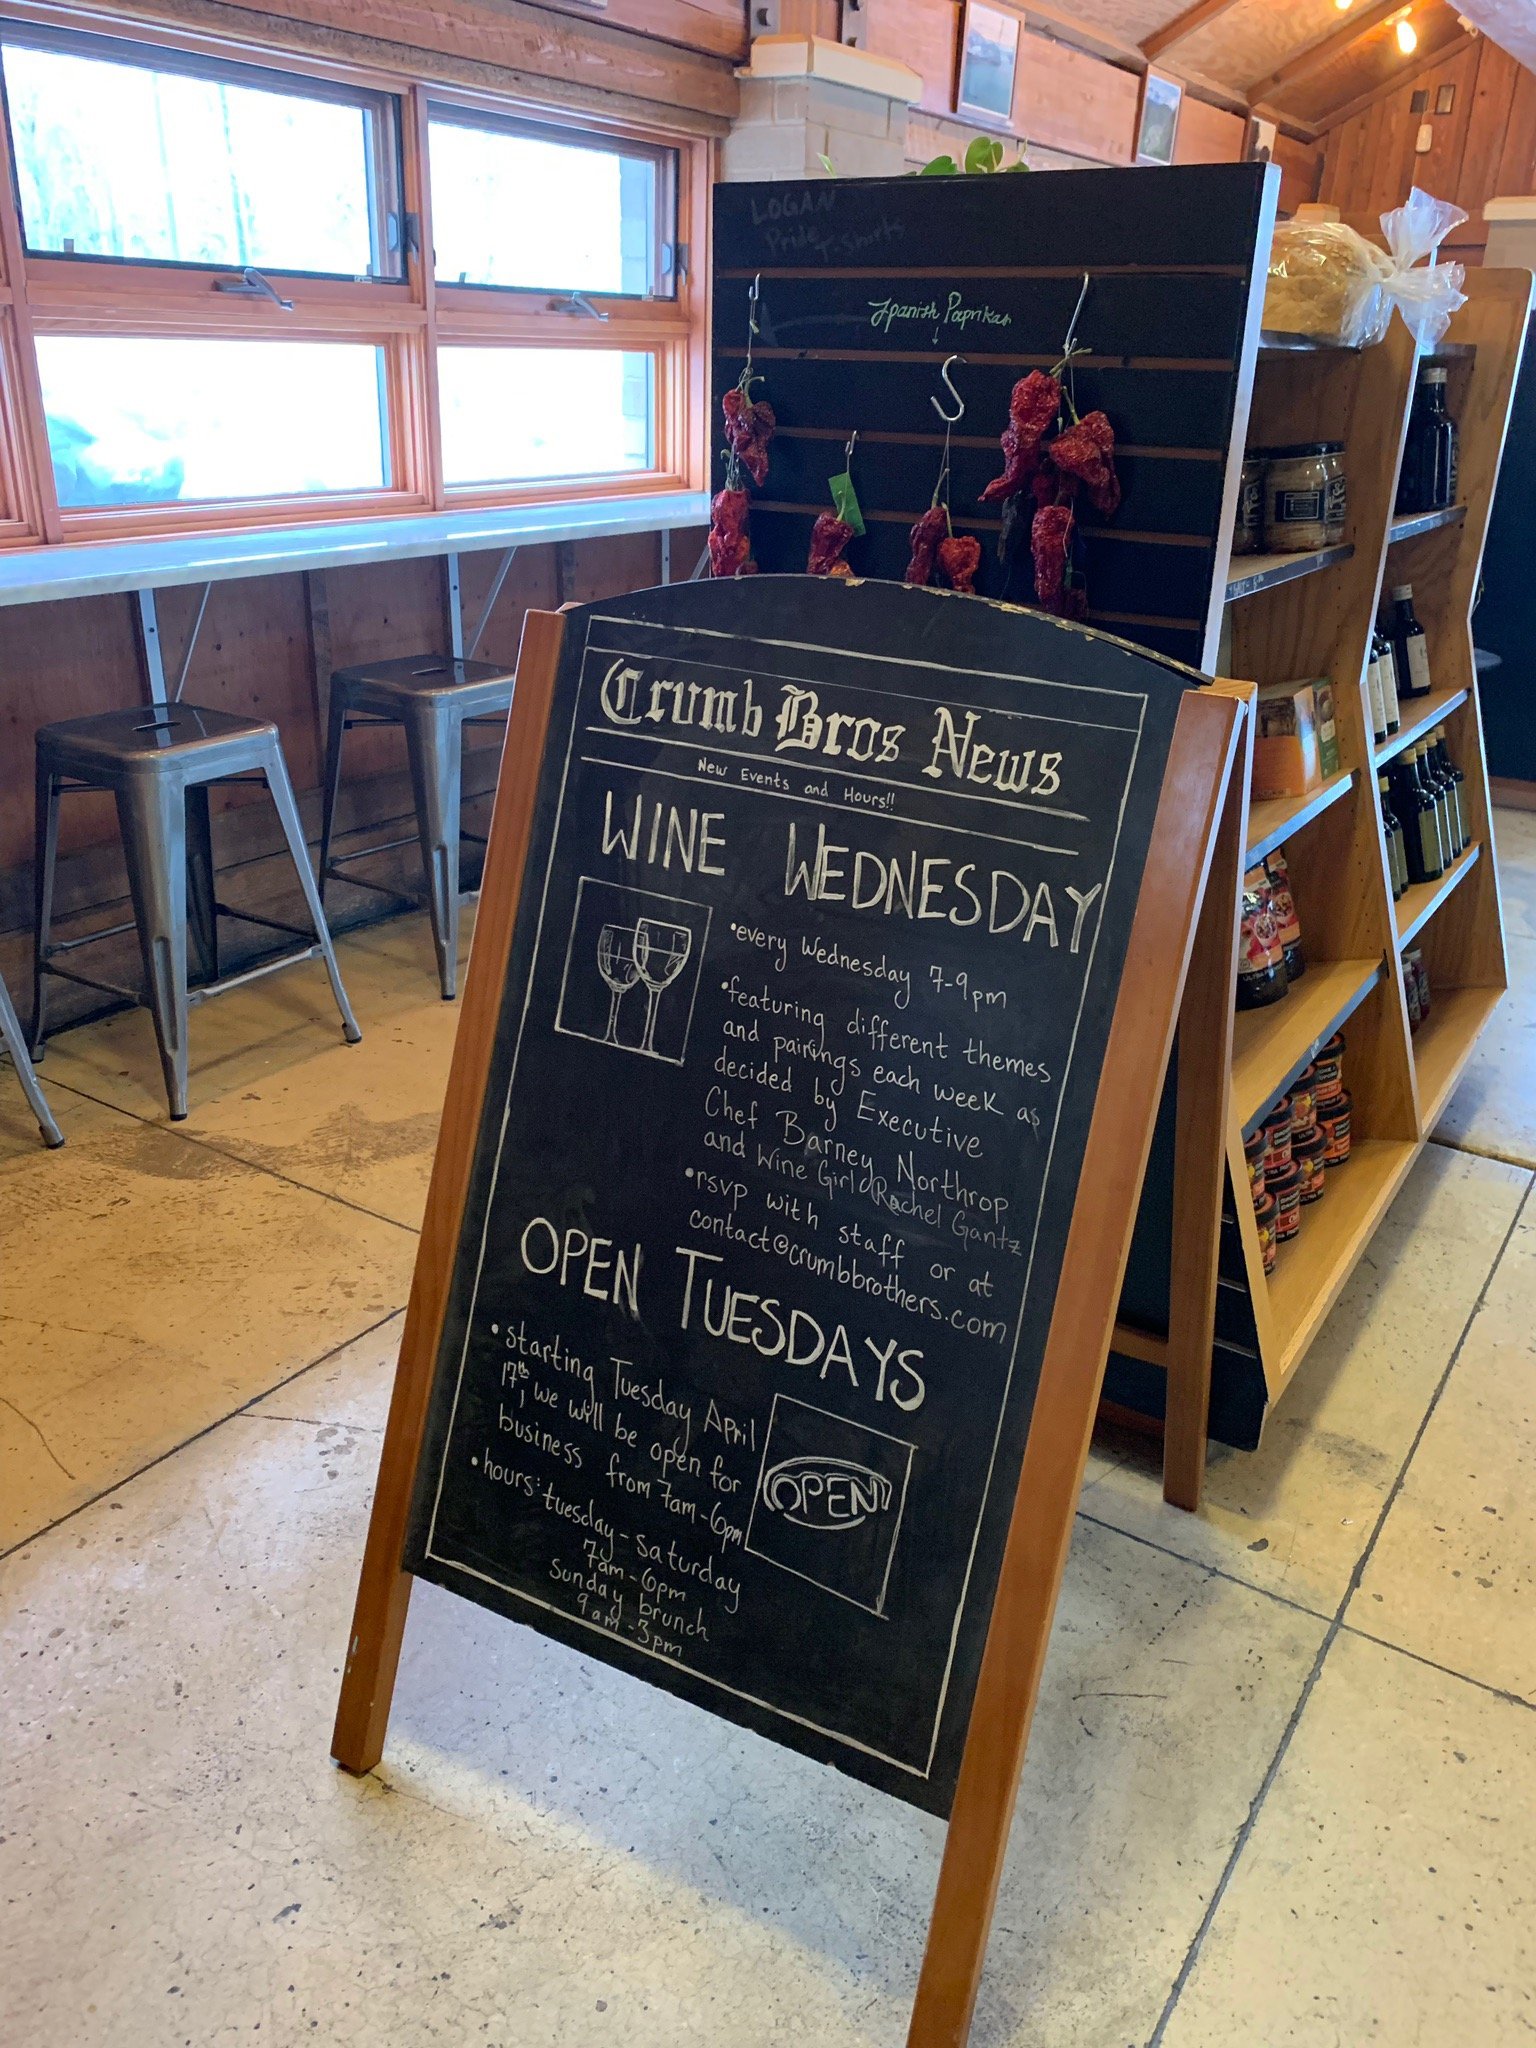 LOGAN
Pride
T-Shirts
Spanish Paprikas
Crumb Bros News
New Events and Hours!!
WINE WEDNESDAY
•every Wednesday 7-9pm
•featuring different themes
and pairings each week as
decided by Executive
Chef Barney Northrop
and Wine Girl Rachel Gantz
•rsvp with staff or at
contact@crumbbrothers.com
OPEN TUESDAYS
•starting Tuesday April
17th, we will be open for
business from 7am-6pm
•hours: tuesday-saturday
7am-6pm
Sunday brunch
9am-3pm
OPEN